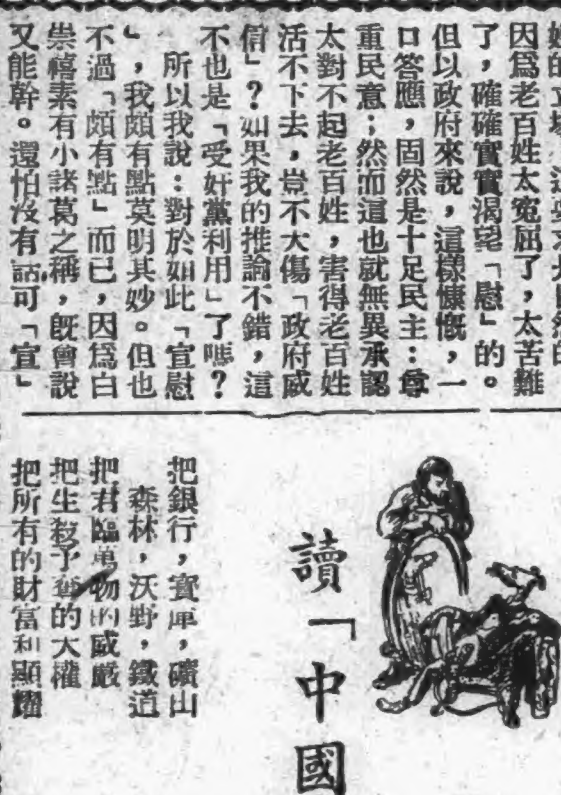 因爲老百姓太寃屈了，太苦難
了，確確實實渴望「慰」的。
但以政府來說，這樣慷慨，一
口答應，固然是十足民主：尊
重民意；然而這也就無異承認
太對不起老百姓，害得老百姓
活不下去，豈不大傷「政府威
信」？如果我的推論不錯，這
不也是「受奸黨利用」了嗎？
所以我說：對於如此「宣慰
」，我頗有點莫明其妙。但也
不過「頗有點」而已，因爲白
崇禧素有小諸葛之稱，旣會說
又能幹。還怕沒有話可「宣」
讀「中國
把銀行，寳庫，礦山
森林，沃野，鐵道
把君臨萬物的威嚴
把生殺予奪的大權
把所有的財富和顯耀